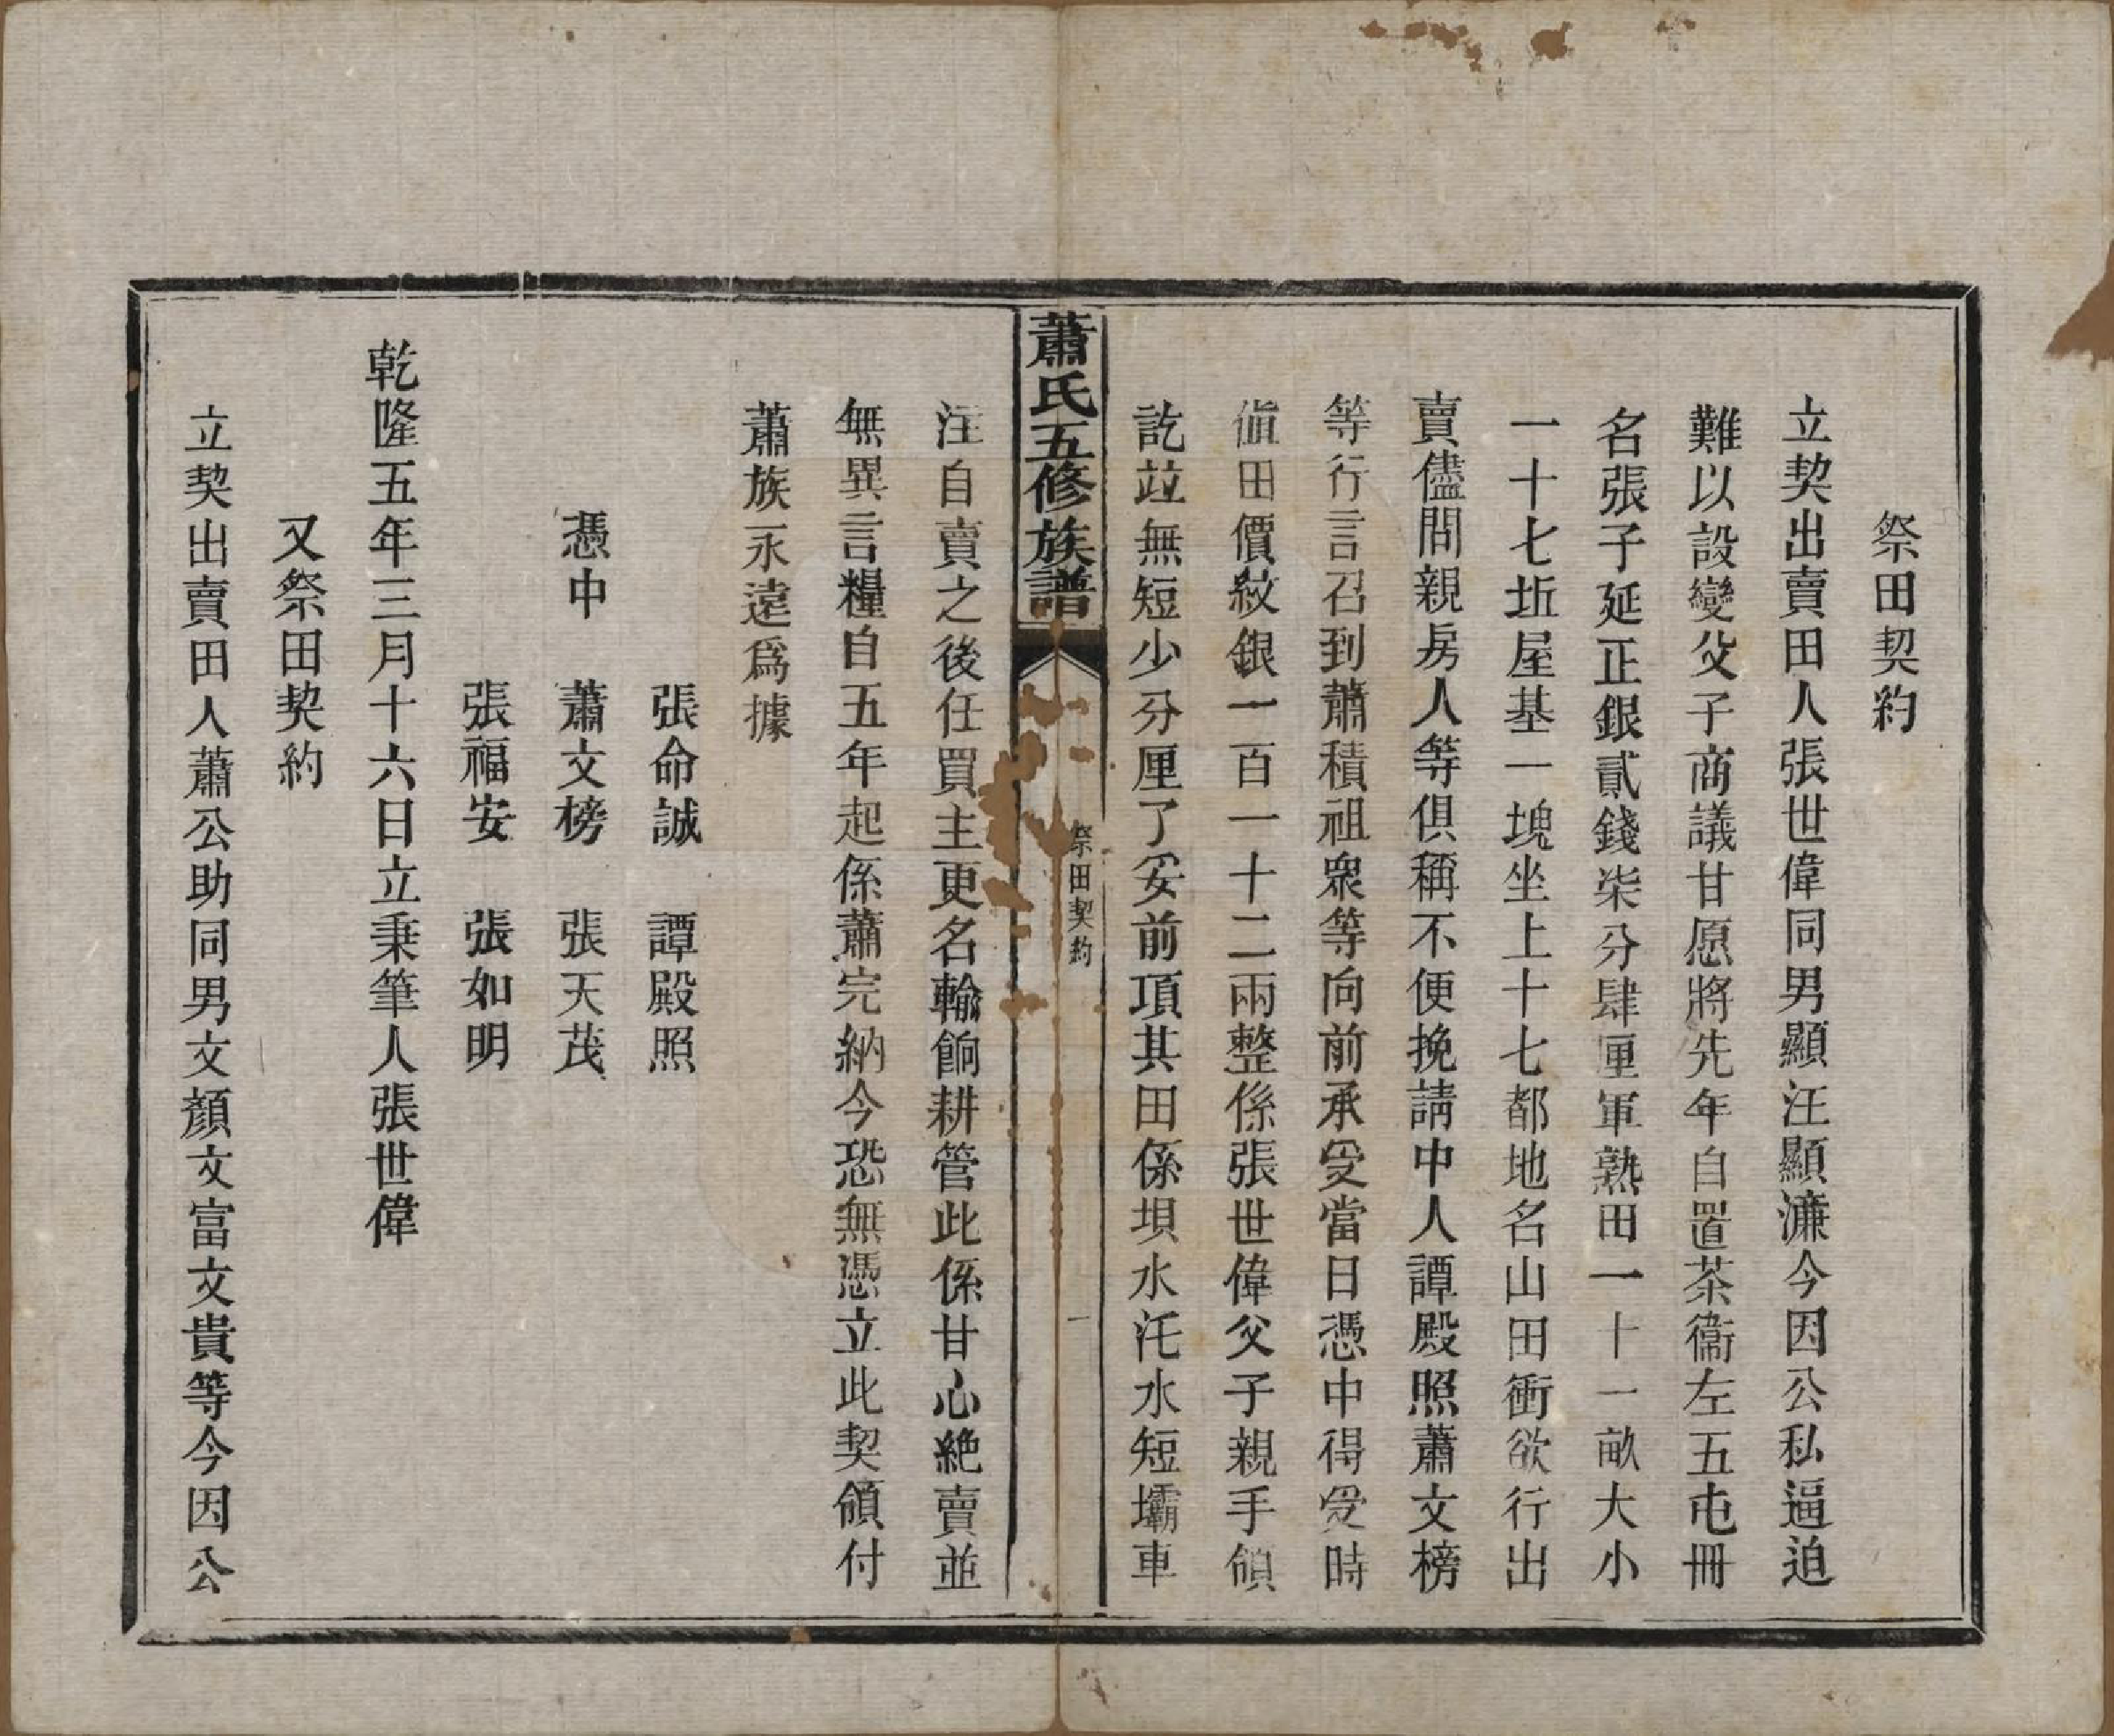 祭田契約
立契出賣田人張世偉同男顯汪顯濂今因公私逼迫
難以設變父子商議甘愿將先年自置茶衞左五屯冊
名張子延正銀貳錢柒分肆厘軍熟田一十一畝大小
一十七坵屋基一塊坐上十七都地名山田衝欲行出
賣儘問親房人等俱稱不便挽請中人譚殿照蕭文榜
等行言召到蕭積祖衆等向前承受當日憑中得受時
値田價紋銀一百一十二兩整係張世偉父子親手領
訖竝無短少分厘了妥前項其田係垻水汑水短壩車
蕭氏五修族譜
祭田契約
一
注自賣之後任買主更名輸餉耕管此係甘心絶賣並
無異言糧自五年起係蕭完納今恐無憑立此契領付
蕭族永遠爲據
張命誠　譚殿照
憑中　蕭文榜　張天茂
張福安　張如明
乾隆五年三月十六日立秉筆人張世偉
又祭田契約
立契出賣田人蕭公助同男文顏文富文貴等今因公